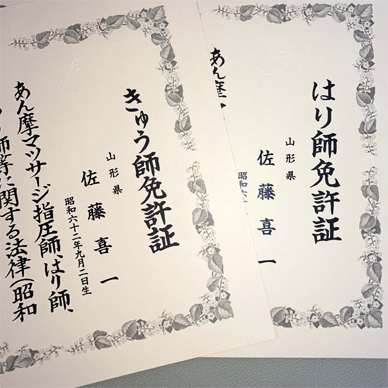 きゅう師免許証
山形県
佐藤喜一
昭和六十二年九月二日生
あん摩マッサージ指圧師、はり師、
う師等に関する法律(昭和
はり師免許証
山形県
佐藤喜一
昭和六
あん摩